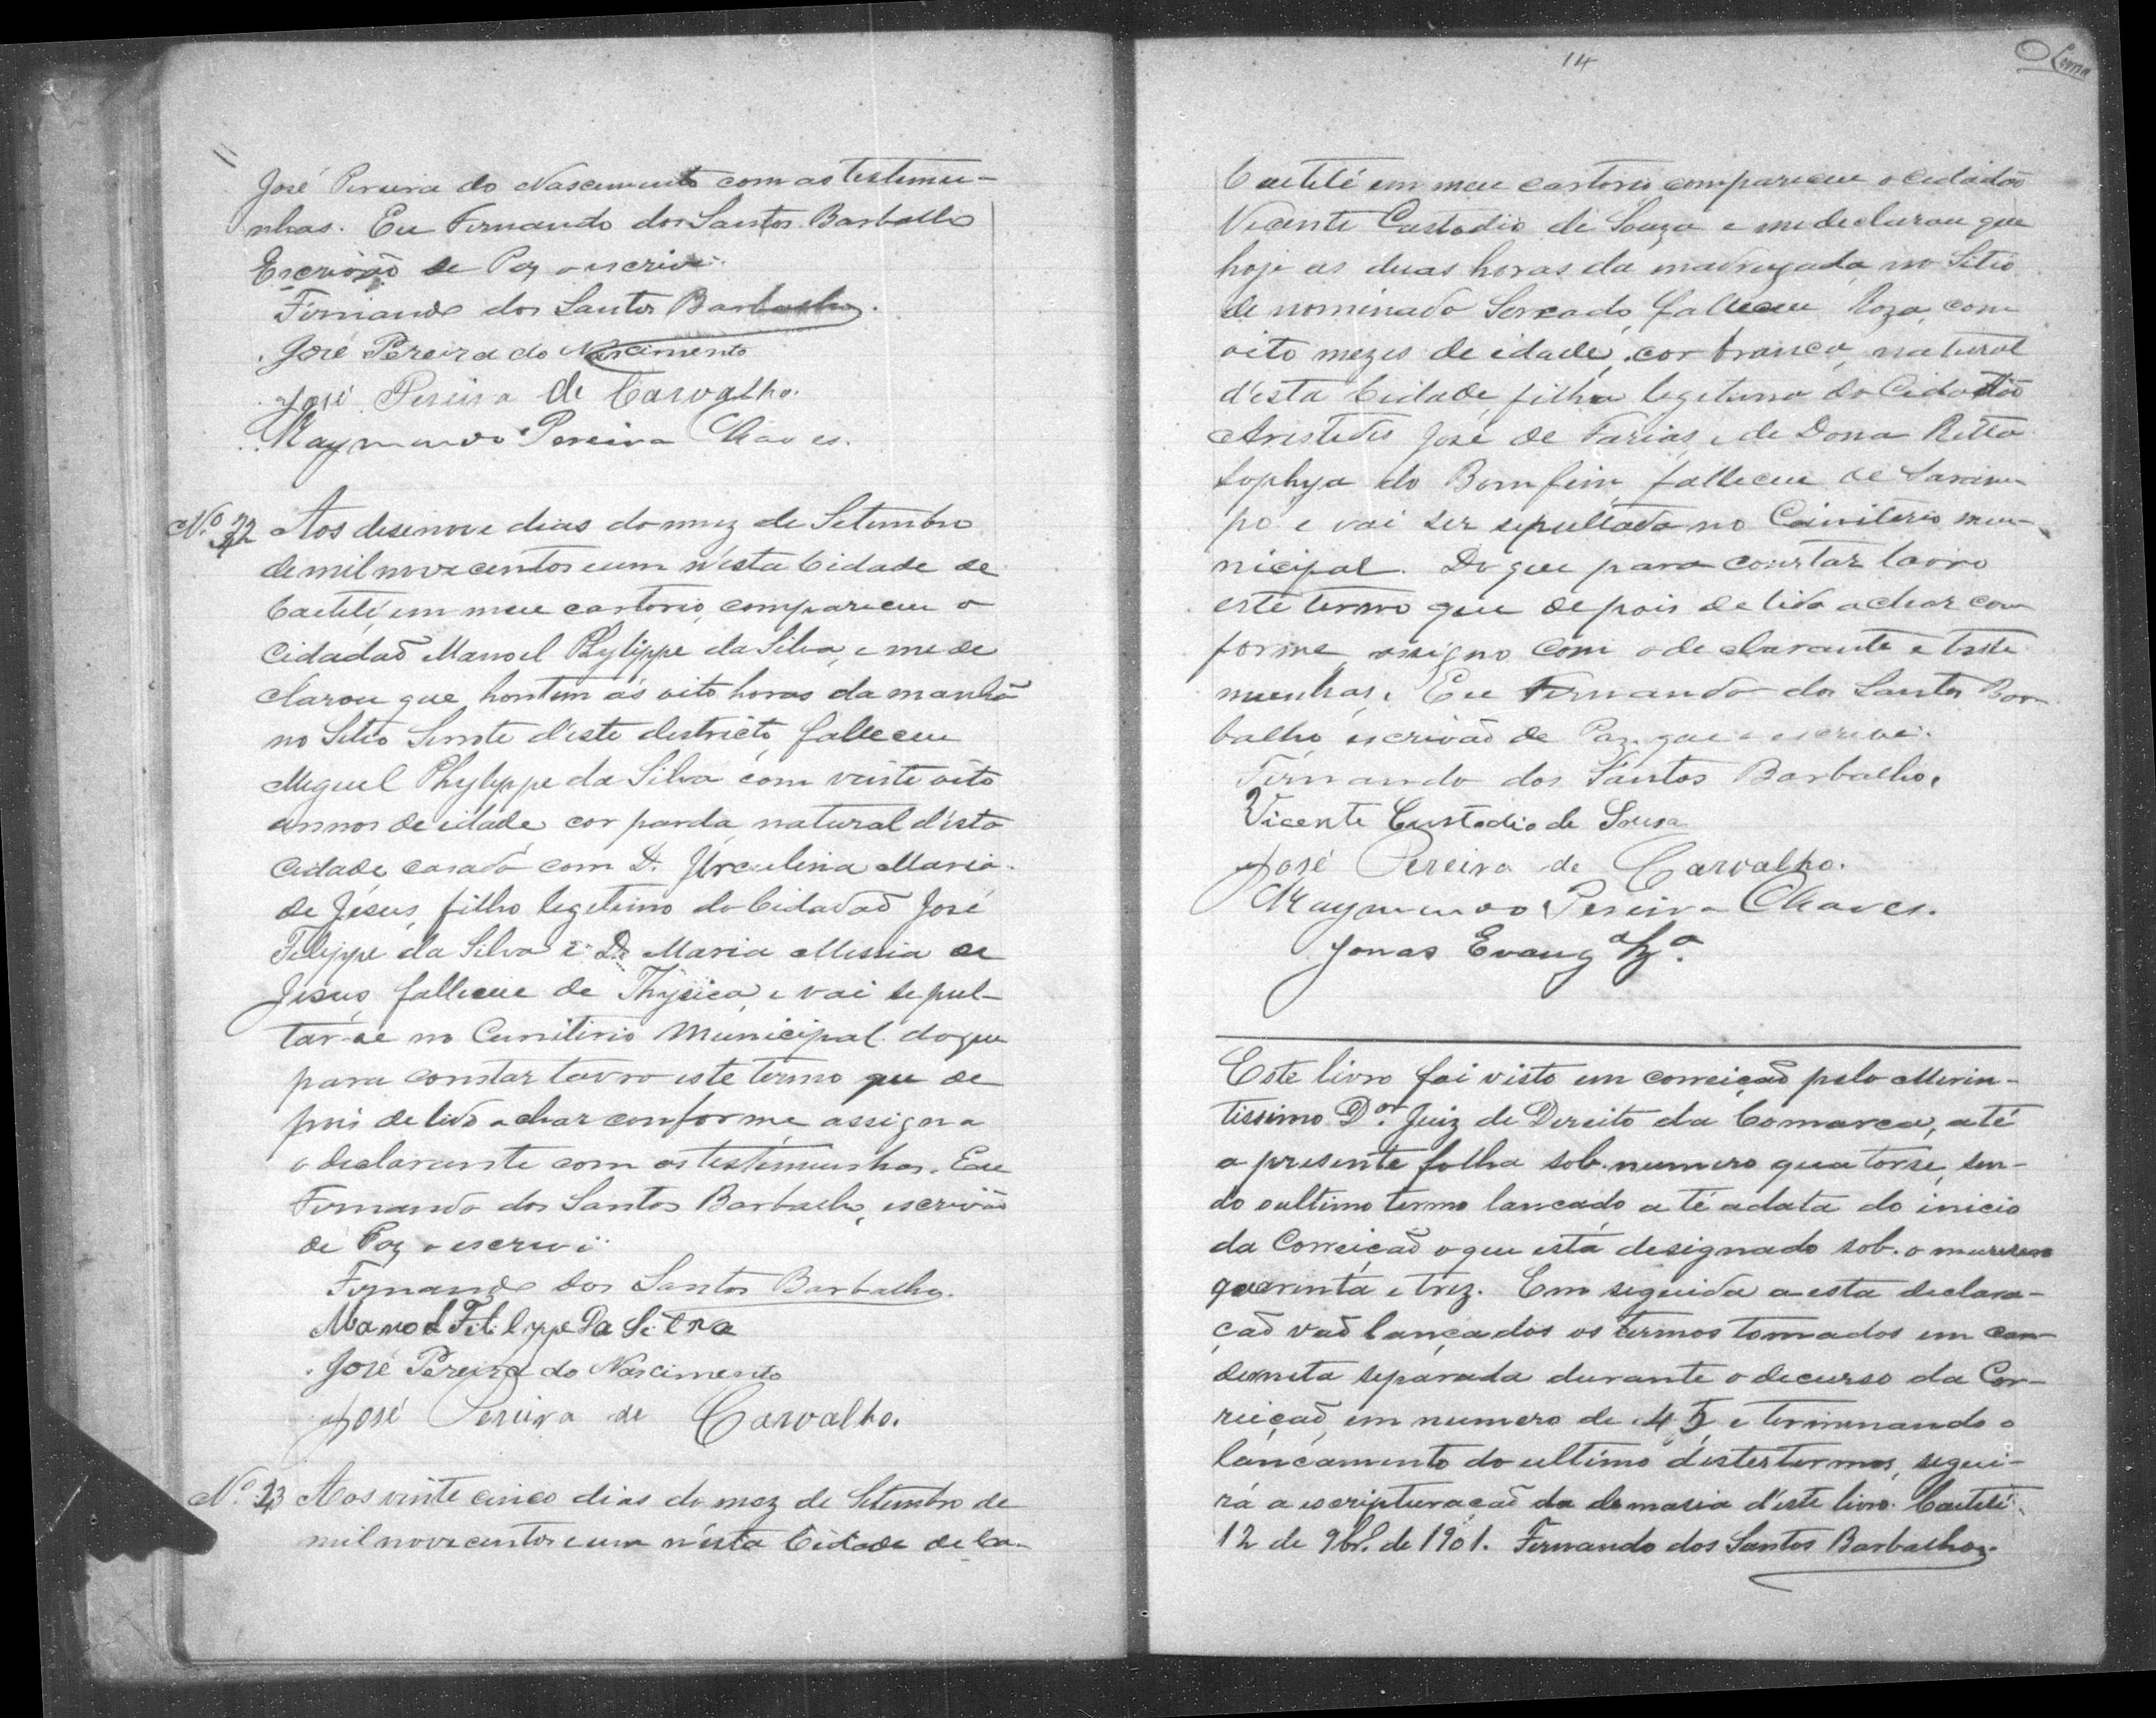 José Pereira do Nascimento com as testemu-
nhas. Eu Fernando dos Santos Barbalho
Escrivão de Paz o escrivi.
Fernando dos Santos Barbalho.
José Pereira do Nascimento
José Pereira de Carvalho.
Raymundo Pereira Chaves.
Nº 42 Aos desenove dias do mez de Setembro
de mil nove centos e um n'esta Cidade de
Caetité, em meu cartorio, compareceu o
Cidadaõ Manoel Phylippe da Silva, e me de
clarou que hontem ás oito horas da manhã
no Sitio d'este destricto, falleceu
Miguel Phylippe da Silva com vinte oito
annos de idade, cor parda, natural d'esta
Cidade, casado com D. Urculina Maria
de Jesus, filho legetimo do Cidadaõ José
Filippe da Silva e D. Maria Messia de
Jesus, falleceu de Thysica, e vai sepul-
tar-se no Cemiterio Municipal. do que
para constar lavro este termo que de
pois de lido e achar conforme, assigna
o declarante com as testemunhas. Eu
Fernando dos Santos Barbalho, escrivão
de Paz o escrevi.
Fernando dos Santos Barbalho.
Manoel Filippe Da Silva
José Pereira do Nascimento
José Pereira de Carvalho.
Nº 43 Aos vinte cinco dias do mez de Setembro de
mil nove centos e um n'esta Cidade de Ca-
14
Lima
Caetité em meu cartorio compareceu o cidadão
Vicente Custodio de Souza e me declarou que
hoje as duas horas da madrugada, no Sitio
de nominado Sercado, falleceu Roza, com
oito mezes de idade, cor branca, natural
d'esta Cidade, filha legetima do Cidadão
Aristides José de Farias, e de Dona Ritta
Sophya do Bomfim, falleceu de Saram
po e vai ser sepultada no Cemiterio mu-
nicipal. Do que para constar lavro
este termo que depois de lido e achar con
forme, assigno com o declarante e teste
munhas. Eu Fernando dos Santos Bar
balho escrivaõ de Paz que o escrevi.
Fernando dos Santos Barbalho.
Vicente Custodio de Sousa
José Pereira de Carvalho.
Raymundo Pereira Chaves.
Jonas Evang
Este livro foi visto em correiçaõ pelo Merin-
tissimo Dor. Juiz de Direito da Comarca, até
a presente folha sob. numero quatorse, sen-
do o ultimo termo lançado até a data do inicio
da Correiçaõ o que está designado sob. o numero
quarenta e trez. Em seguida a esta declara-
çaõ vaõ lançados os termos tomados em ca-
derneta separada durante o decurso da Cor-
reiçaõ, em numero de 45, e terminando o
lançamento do ultimo d'estes termos, segui-
rá a escripturaçaõ da demasia d'este livro. Caetité
12 de 9br. de 1901. Fernando dos Santos Barbalho.